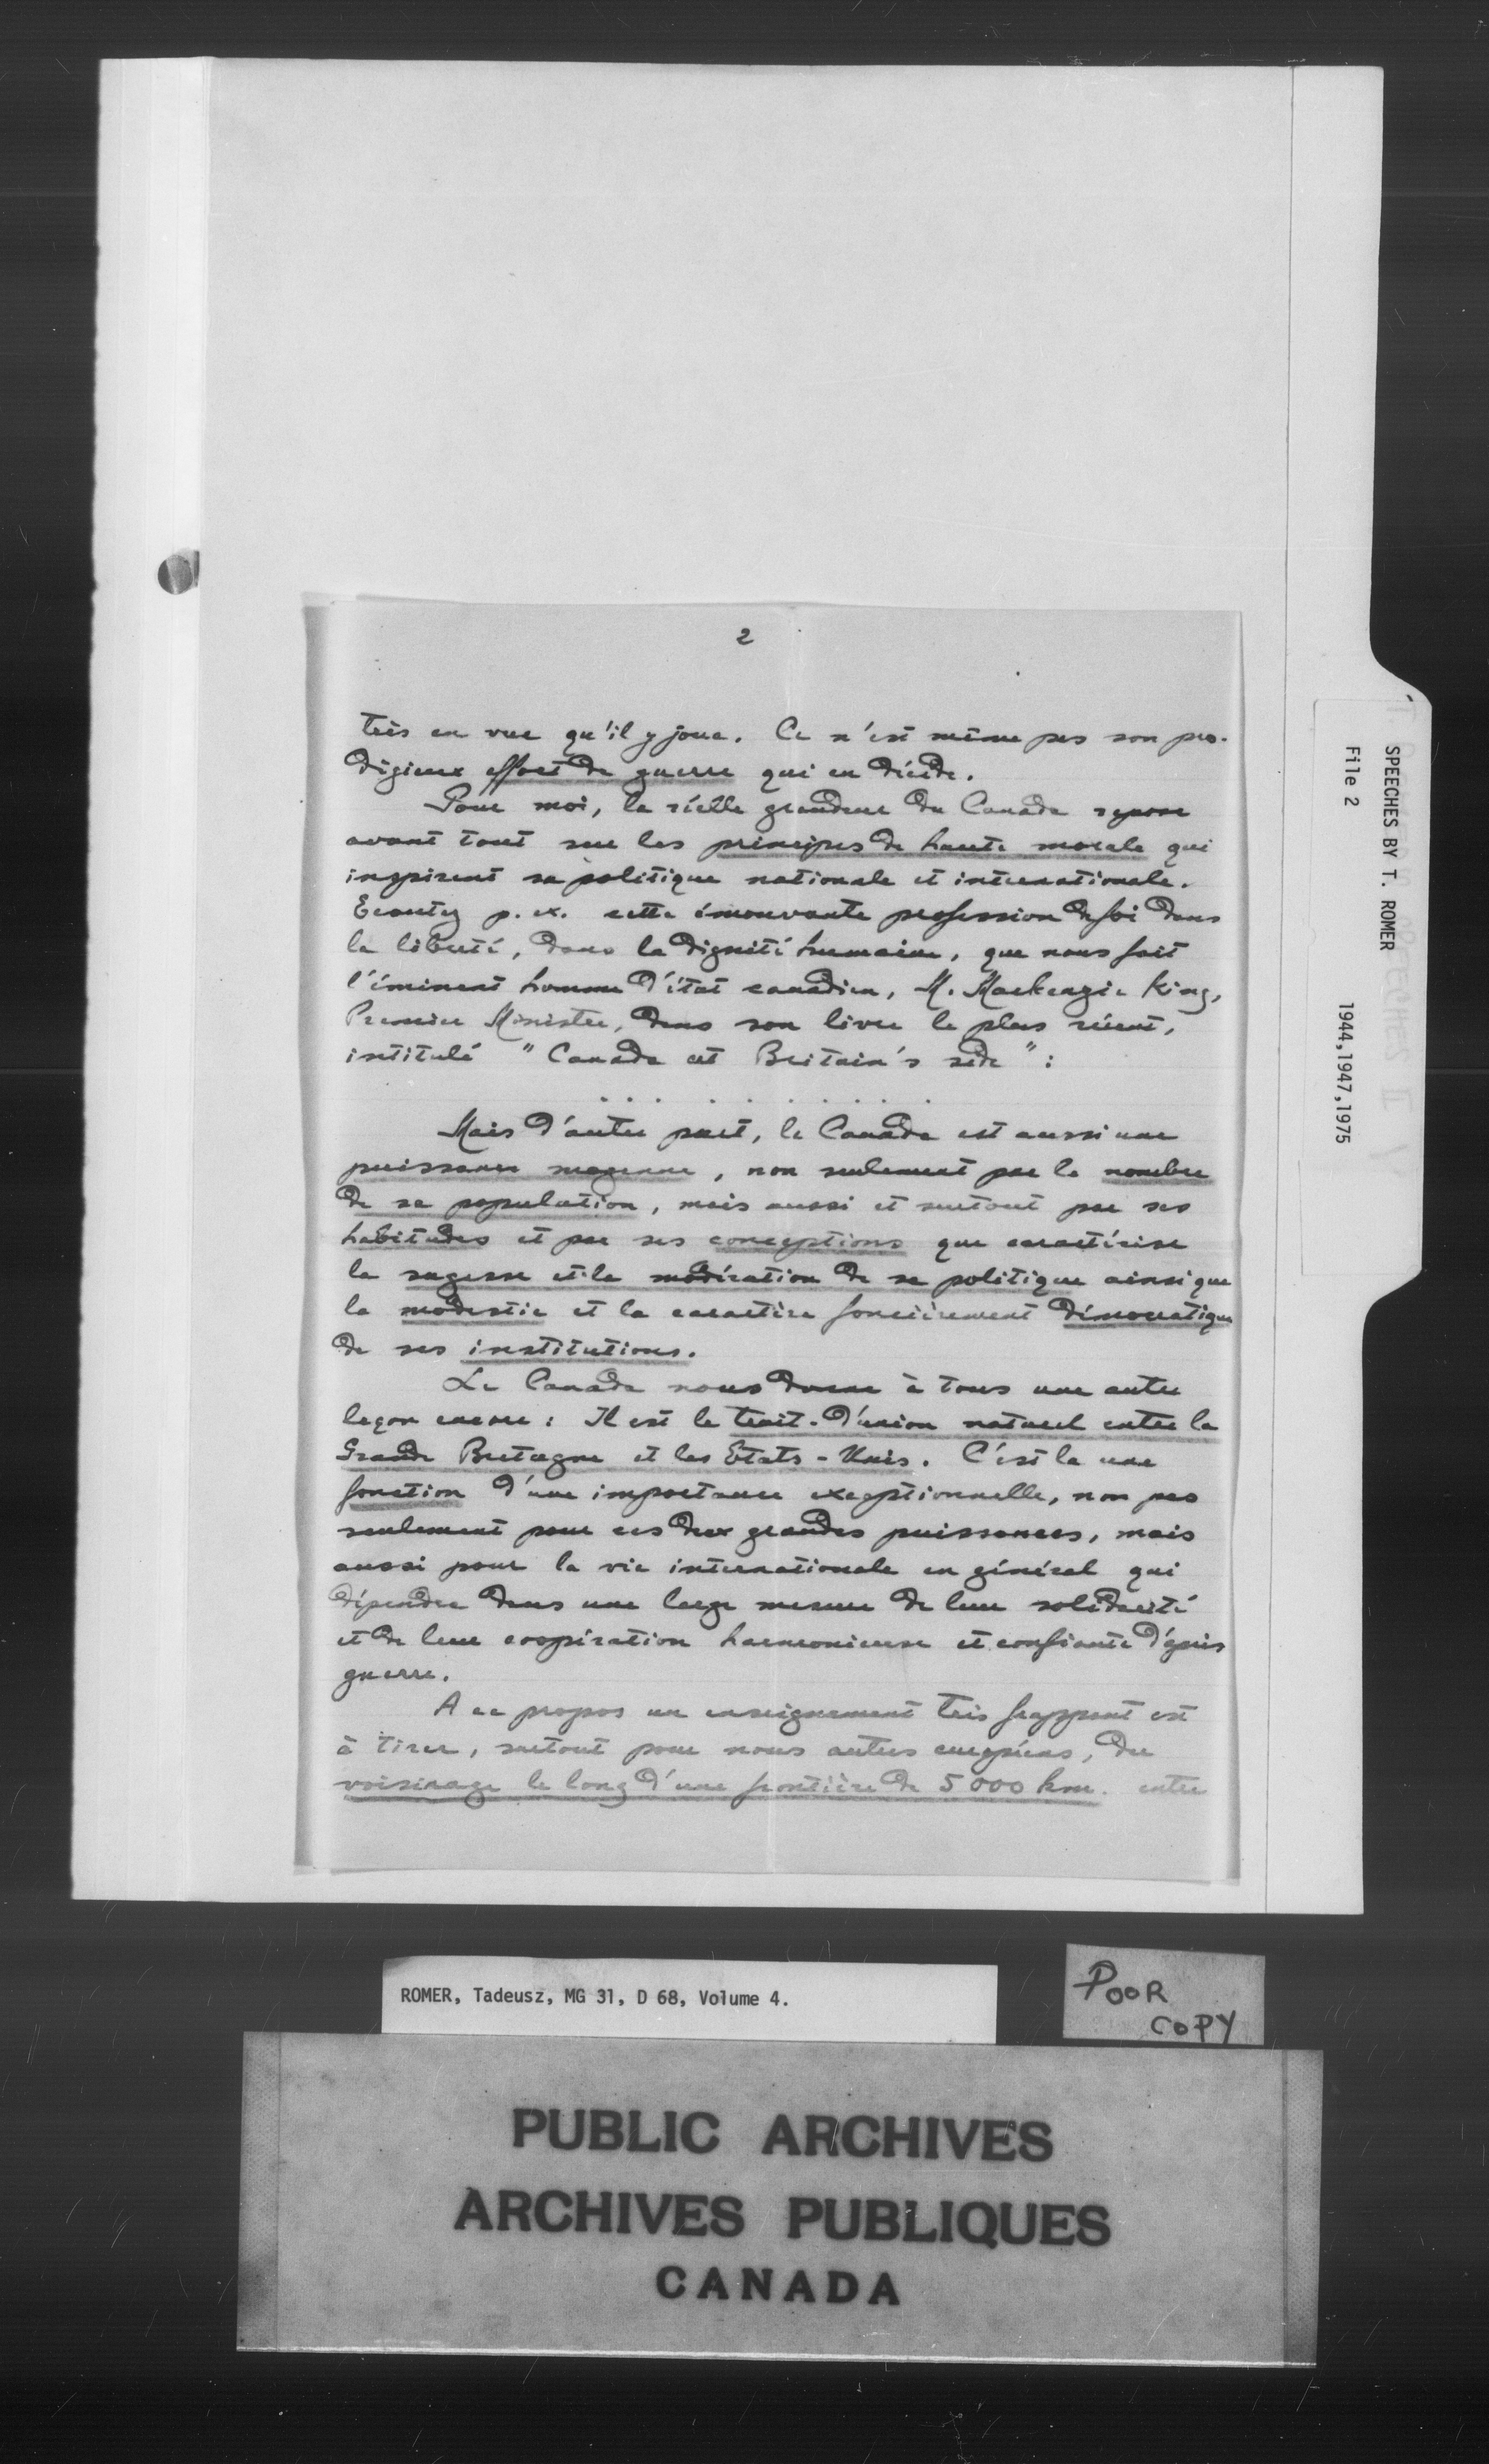 2
très en vue qu'il y joue. Ce n'est même pas son pro-
digieux effort de guerre qui en décide.
Pour moi, la réelle grandeur du Canada repose
avant tout sur les principes de haute morale qui
inspirent sa politique nationale et internationale.
Ecoutez p. ex. cette émouvante profession de foi dans
la liberté, dans la dignité humaine, que nous fait
l'éminent homme d'état canadien, M. Mackenzie King,
Premier Ministre, dans son livre le plus récent,
intitulé "Canada at Britain's side":
. . . . . . . . . .
Mais d'autre part, le Canada est aussi une
puissance moyenne, non seulement par le nombre
de sa population, mais aussi et surtout par ses
habitudes et par ses conceptions que caractérise
la sagesse et la modération de sa politique ainsi que
la modestie et le caractère foncièrement démocratique
de ses institutions.
Le Canada nous donne à tous une autre
leçon encore: Il est le trait-d'union naturel entre la
Grande Bretagne et les Etats-Unis. C'est la une
fonction d'une importance exceptionnelle, non pas
seulement pour ces deux grandes puissances, mais
aussi pour la vie internationale en général qui
dépendra dans une large mesure de leur solidarité
et de leur coopération harmonieuse et confiante d'après
guerre.
A ce propos un enseignement très frappant est
à tirer, surtout pour nous autres européens, du
voisinage le long d'une frontière de 5000 km. entre
SPEECHES BY T. ROMER
File 2
1944,1947,1975
ROMER, Tadeusz, MG 31, D 68, Volume 4.
POOR
COPY
PUBLIC ARCHIVES
ARCHIVES PUBLIQUES
CANADA